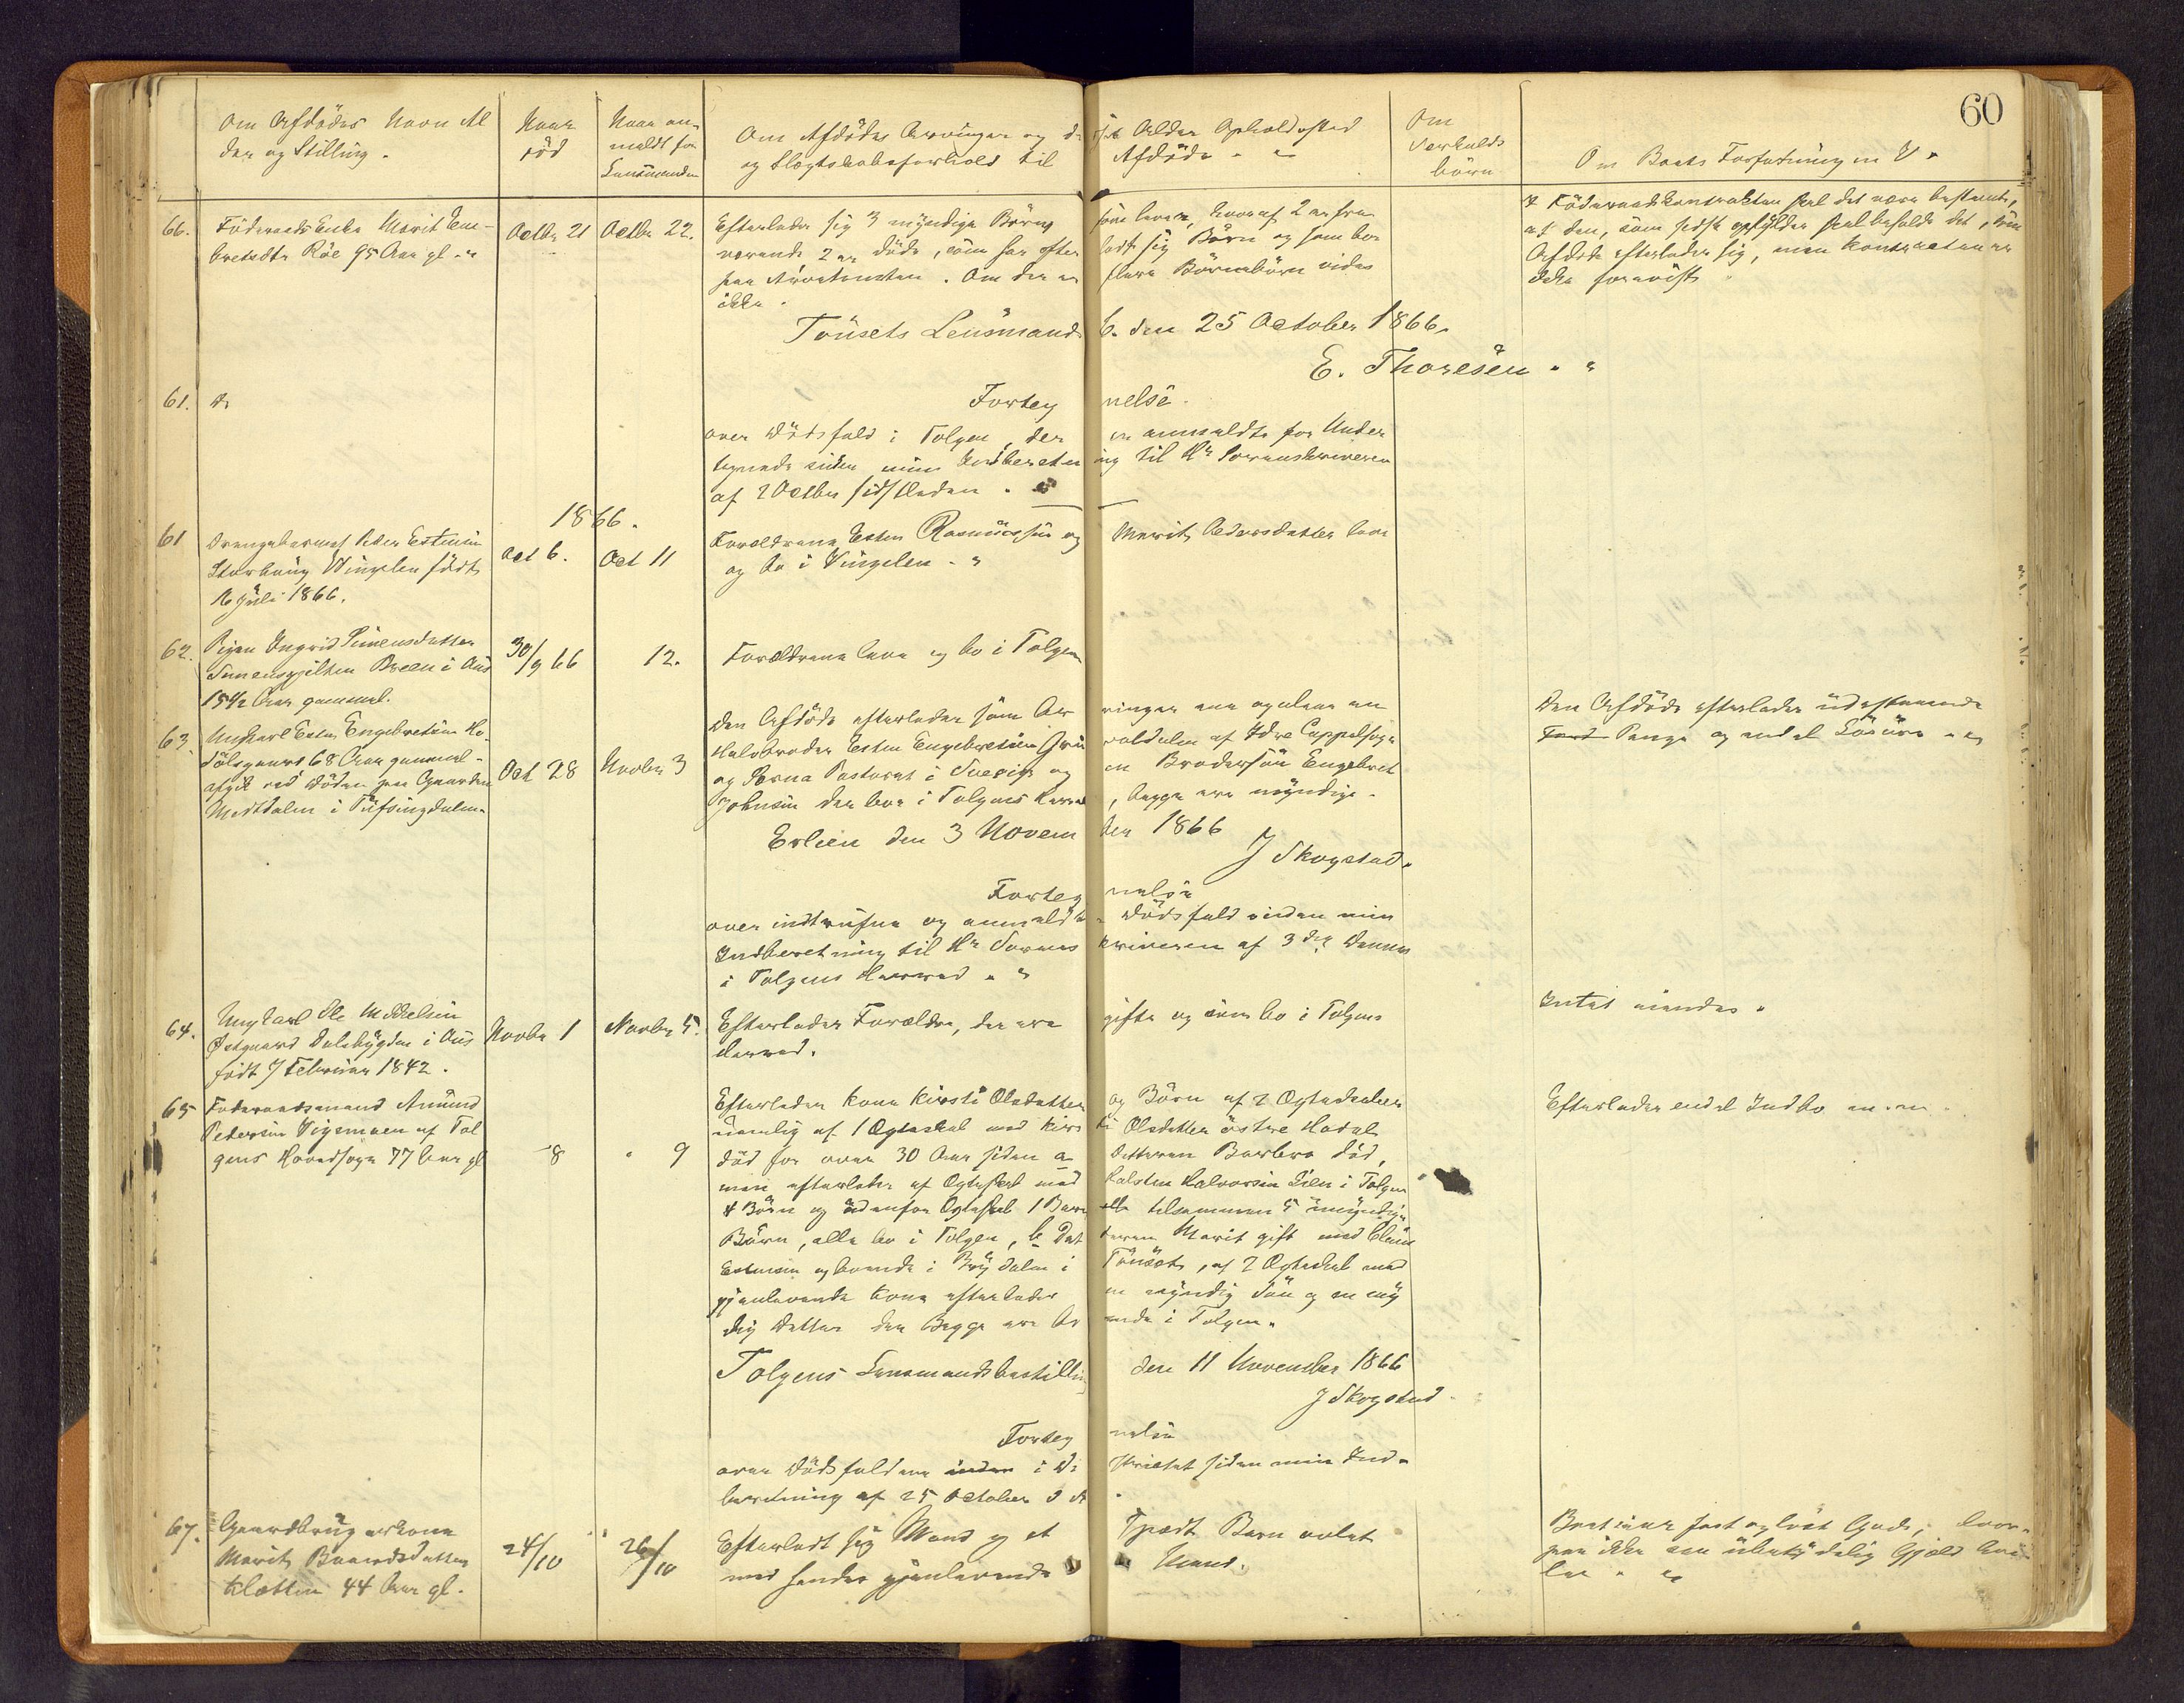 60
Om Afdødes Navn Al
der og Stilling.
Naar
død
Naar an-
meldt for
Lensmanden
Om Afdødes Arvinger og deres Alder Opholdssted
og Slægtskabsforhold til Afdøde
Om
Særkulds
børn
Om Boets Forfatning m V.
66. Föderaads Enke Marit Em-
bretsdtr Röe 95 Aar gl.
Octbr 21
Octbr 22.
Efterlader sig 3 myndige Börn, som lever, hvoraf 2 er fra
værende 2 er döde, som har efter ladt sig Börn og som bor
paa Aastuen. Om der er flere Börnebörn vides
ikke.
I Föderaadskontrakten skal det være bestemt,
at den, som sidst opfylder skal beholde det, som
Afdöde efterlader sig, men Kontracten er
ikke foreviist
Tönsets Lensmandsb. den 25 October 1866.
E. Thoresen.
61. D
Fortegnelse
over Dödsfald i Tolgen, der er anmeldte for Under
tegnede siden min Indberetning til Hr Sorenskriveren
af 2 Octbr sidstleden.
1866.
61 Drengebarnet Peder Estensen
Storbæng Vingelen födt
16 Juli 1866.
Oct 6.
Oct 11
Forældrene Esten Rasmussen og Marit Pedersdatter leve
og bo i Vingelen.
62. Pigen Ingrid Simensdatter
Simensgjelten Breen i Aus
15 1/2 Aar gammel.
30/9 66
12.
Forældrene leve og bo i Tolgen
63. Ungkarl Esten Engebretsen Ho-
dölsgaard 68 Aar gammel
afgik ved Döden paa Gaarden
Midtdalen i Tufsingdalen.
Oct 28
Novbr 3
Den Afdöde efterlader som Arvinger
Halvbroder Esten Engebretsen Grövoldalen af Idre Cappelsogn
og Serna Pastorat i Sverige og en Brodersön Engebret
Johnsen der bor i Tolgens Herred, begge ere myndige.
Den Afdöde efterlader udestaaende
Penge og endel Lösöre
Erlien den 3 November 1866
J Skogstad.
Fortegnelse
over indtrufne og anmeldte Dödsfald siden min
Indberetning til Hr Sorenskriveren af 3die Dennes
i Tolgens Herred
64. Ungkarl Ole Mikkelsen
Östgaard Dalsbygden i Aus
födt 7 Februar 1842.
Novbr 1
Novbr 5.
Efterlader Forældre, der ere gifte og som bo i Tolgens
Herred.
Intet eiendes.
65 Föderaadsmand Amund
Pedersen Vigemoen af Tol
gens Hovedsogn 77 Aar gl
8
9
Efterlader Kone Kirsti Olsdatter og Börn af 2 Ægteskaber
nemlig af 1 Ægteskab med Kirsti Olsdatter östre Hodal
död for over 30 Aar siden a Datteren Barbro död,
men efterlater af Ægteskab med Halsten Halvorsen Lien i Tolgen
4 Börn og udenfor Ægteskab 1 Barn tilsammen 5 umyndige
Börn, alle bo i Tolgen, b Datteren Marit gift med
Estensen og boende i Brydalen i Tönset, af 2 Ægteskab med
gjenlevende Kone efterlader en myndig Sön og en myn
dig Datter der Begge ere boende i Tolgen.
Efterlader endel Indbo
Tolgens Lensmandsbestilling den 11 November 1866
J Skogstad
Fortegnelse
over Dödsfaldene i Distrietet siden min Ind-
beretning af 25 October d A
67. Gaardbrugerkone
Marit Baardsdatter
Kletten 44 Aar gl.
24/10
26/10
Efterladt sig Mand og et spædt Barn avlet
med hendes gjenlevende Mand.
Boet eier fast og löst Gods, hvor-
paa ikke ubetydelig Gjæld hvi
ler